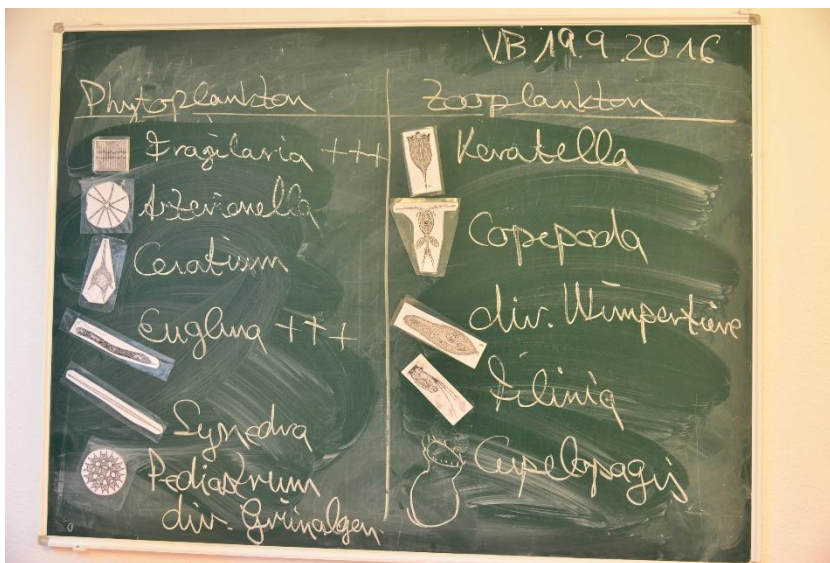 VB 19.9.2016
Phytoplankton
Fragilaria +++
Asterionella
Ceratium
Euglena +++
Synedra
Pediastrum
div. Grünalgen
Zooplankton
Keratella
Copepoda
div. Wimpertiere
Filinia
Cupelopagis